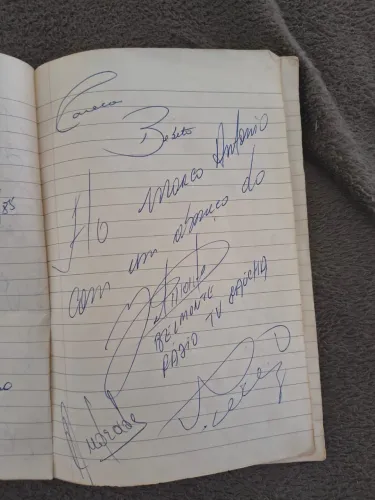 Careca
Bebeto
Ao Marco Antonio
com um abraço do
BELMONTE
RADIO TV GAUCHA
Andrade
85